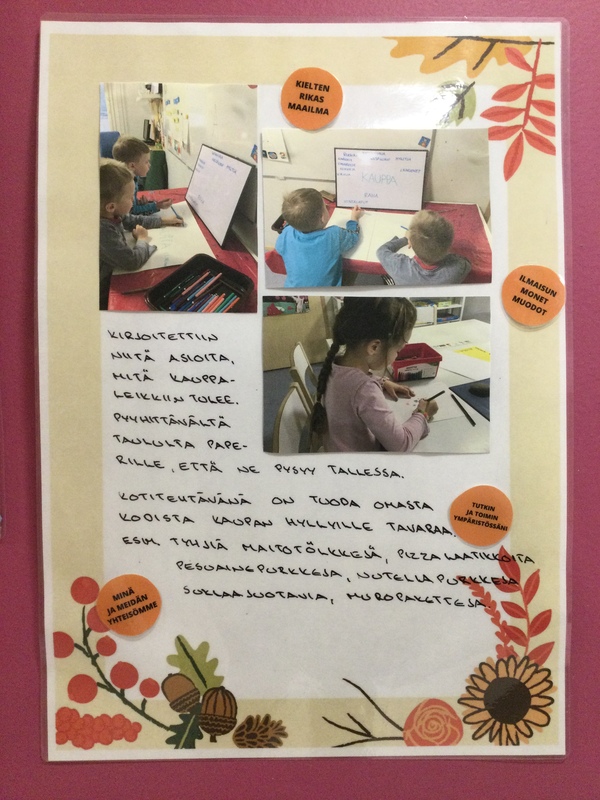 KIELTEN
RIKAS
MAAILMA
KAUPPA
ILMAISUN
MONET
MUODOT
KIRJOITETTIIN
NIITÄ ASIOITA,
MITÄ KAUPPA-
LEIKKIIN TULEE.
PYYHITTÄVÄLTÄ
TAULULTA PAPE-
RILLE, ETTÄ NE PYSYY TALLESSA.
KOTITEHTÄVÄNÄ ON TUODA OMASTA
KODISTA KAUPAN HYLLYILLE TAVARAA.
ESIM. TYHJIÄ MAITOTÖLKKEJÄ, PIZZALAATIKKOITA
PESUAINEPURKKEJA, NUTELLAPURKKEJA
SUKLAAJUOTAVIA, MUROPAKETTEJA.
TUTKIN
JA TOIMIN
YMPÄRISTÖSSÄNI
MINÄ
JA MEIDÄN
YHTEISÖMME